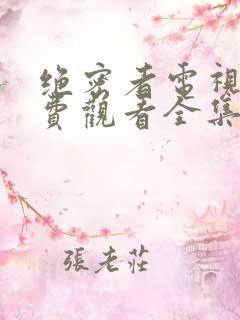 绝密者電視
費觀看全集
張老莊